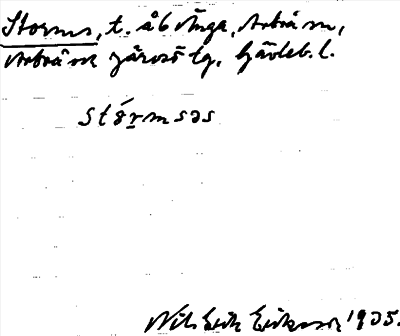 Storms, t. åb Änga, Arbrå sn,
Arbrå och Järvsö tg, Gävleb. l.
stårmsəs
Nils Erik Eriksson 1935.